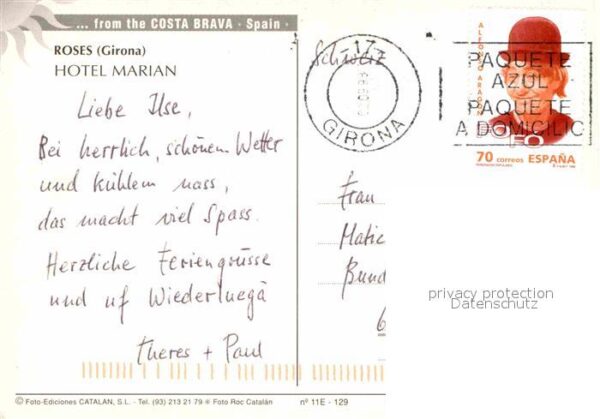 ... from the COSTA BRAVA · Spain ·
ROSES (Girona)
HOTEL MARIAN
Liebe Ilse,
Bei herrlich, schönem Wetter
und kühlem nass,
das macht viel Spass.
Herzliche Feriengrüsse
und uf Wiederluegä
Theres + Paul
Schweiz
17
GIRONA
PAQUETE
AZUL
PAQUETE
A DOMICILIC
ALFONSO ARAGON
FOFO
70 correos ESPAÑA
Frau
Matic
Bund
6
privacy protection
Datenschutz
© Foto-Ediciones CATALAN, S.L. - Tel. (93) 213 21 79 ® Foto Roc Catalán
nº 11E - 129